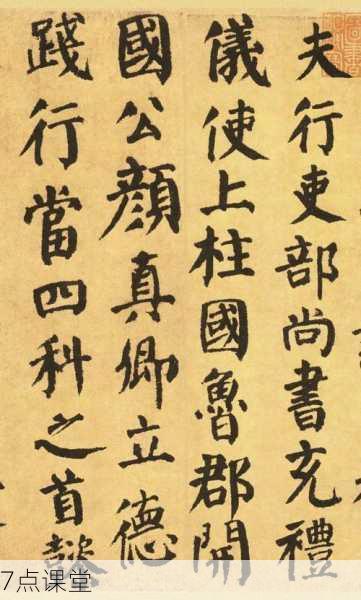 夫行吏部尚書充禮
儀使上柱國魯郡開
國公顏真卿立德
踐行當四科之首懿
7点课堂